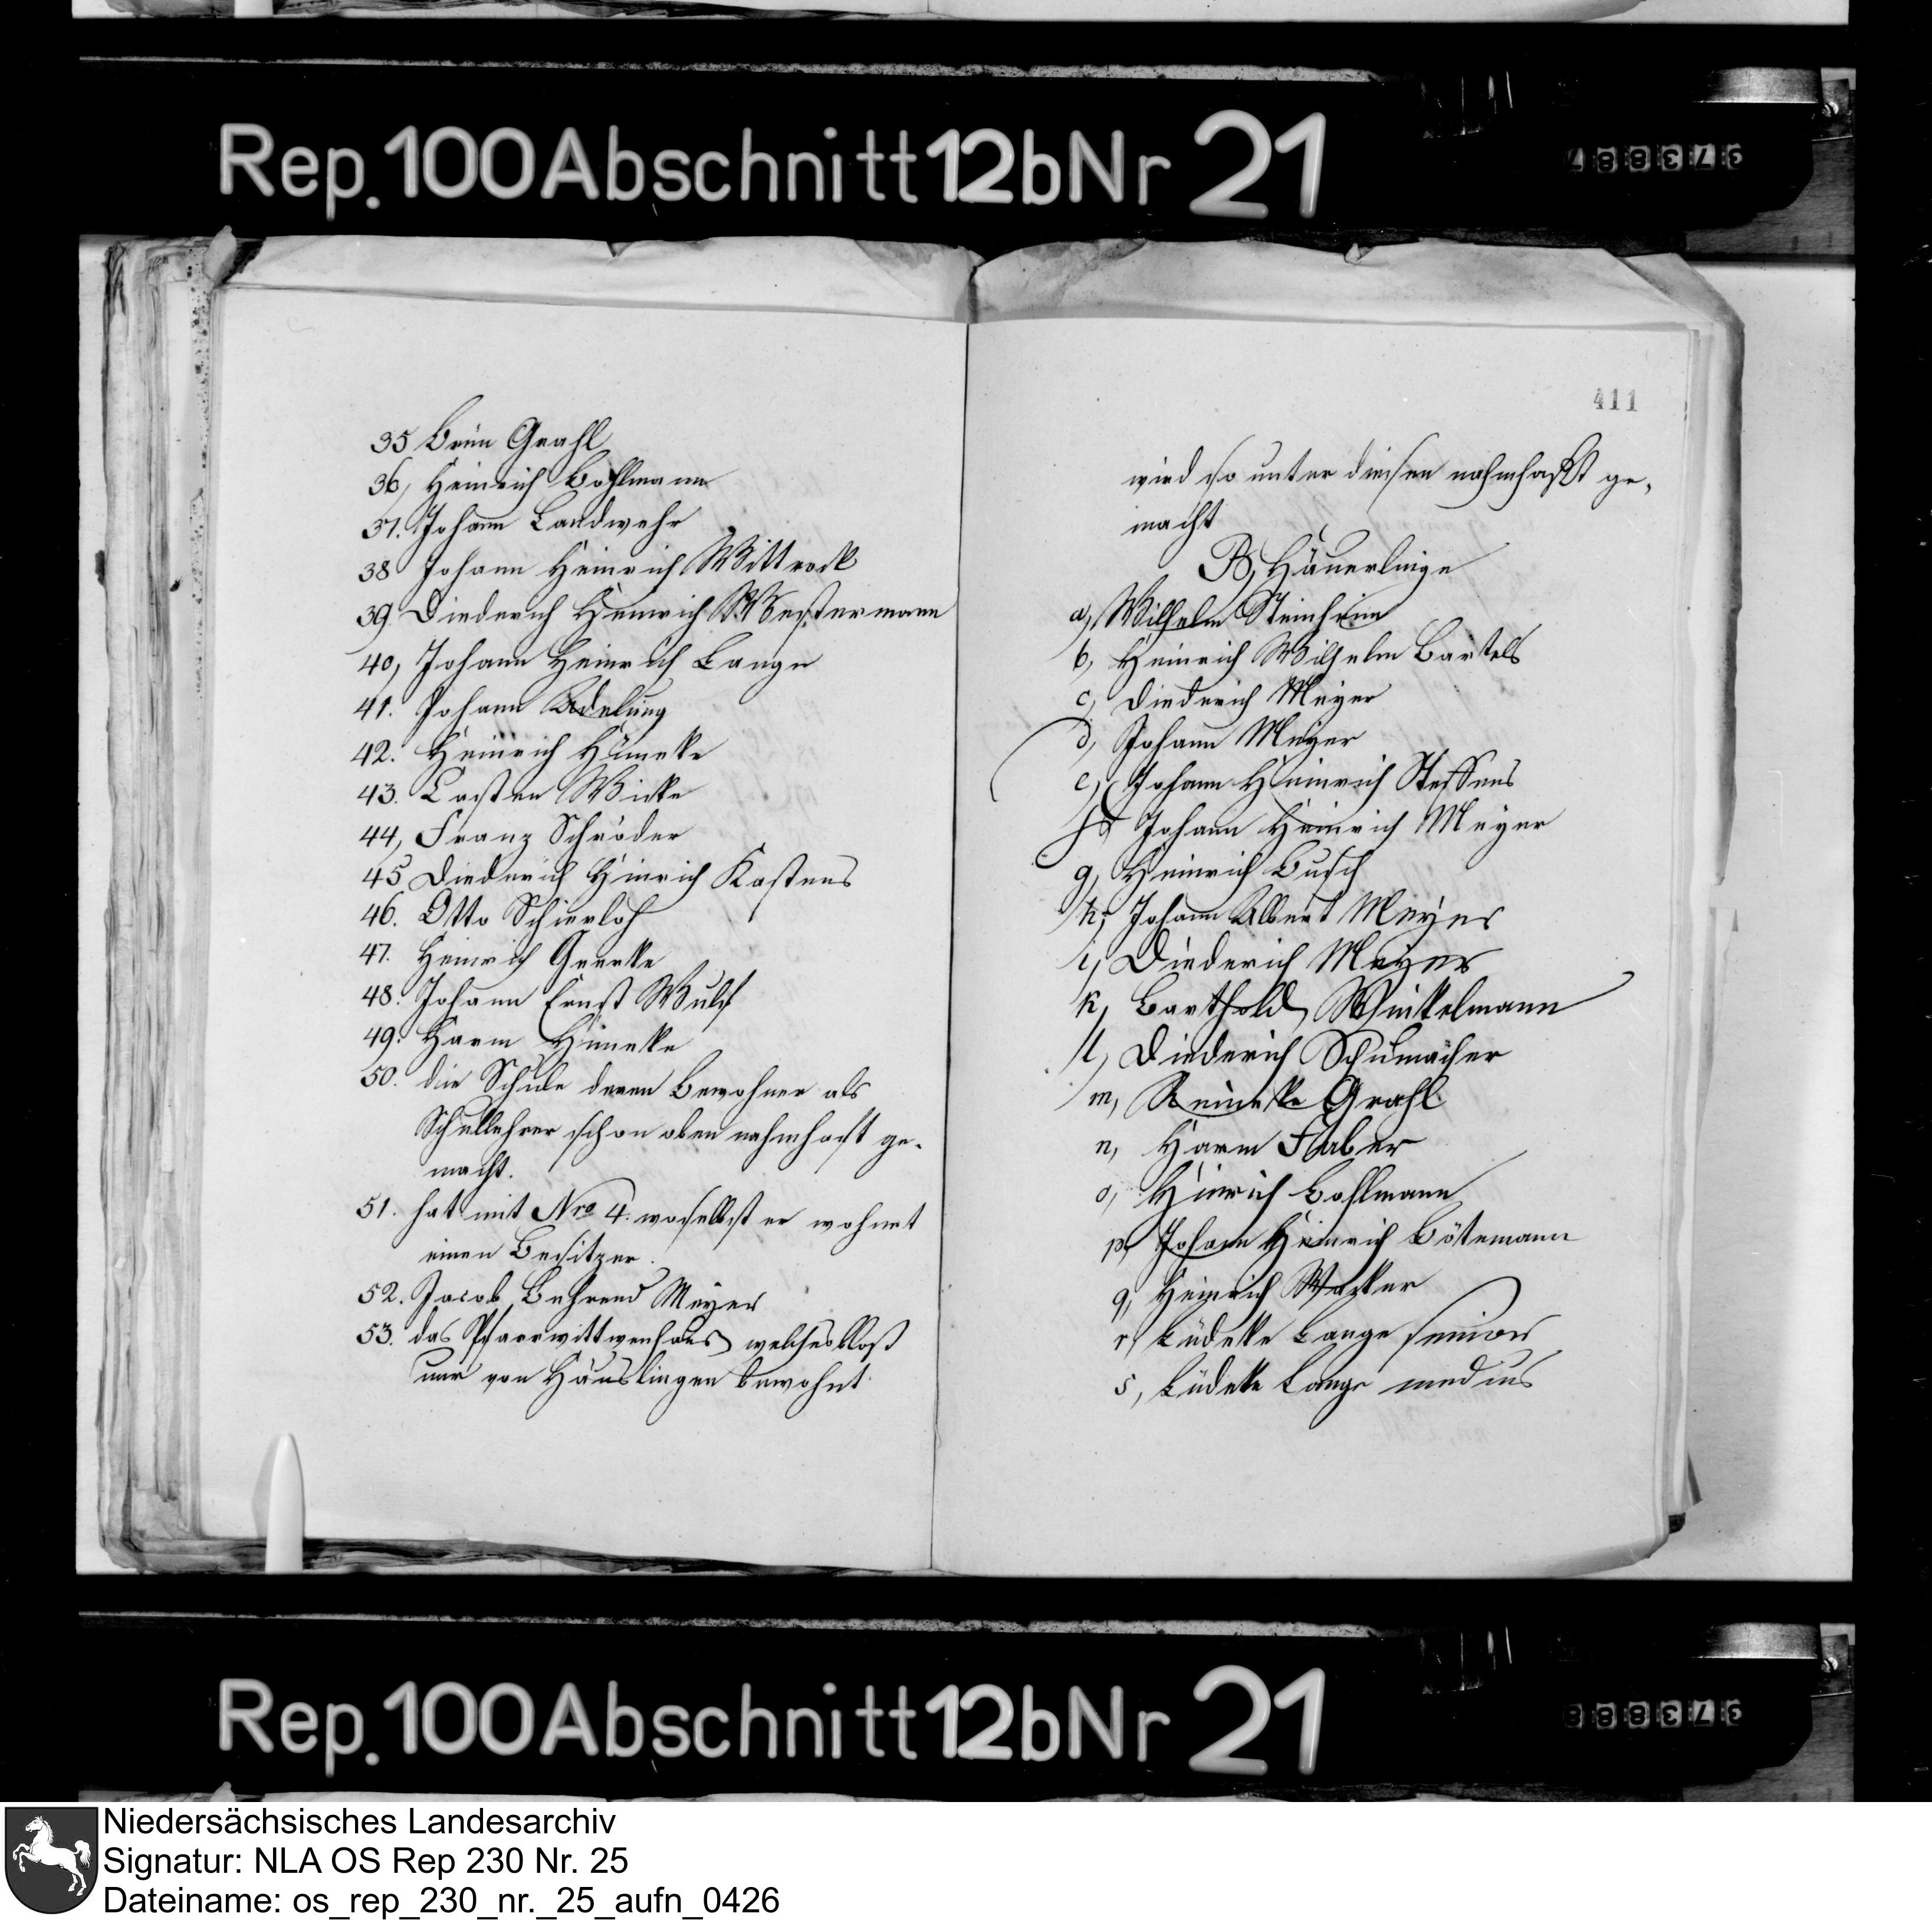 Rep. 100 Abschnitt 12b Nr 21
373887
35 Brün Grahl
36, Heinrich Bohlmann
37. Johann Landwehr
38 Johann Heinrich Wittrock
39. Diederich Heinrich Westermann
40, Johann Heinrich Lange
41. Johann Adelung
42. Heinrich Hüneke
43. Casten Wicke
44, Franz Schröder
45 Diederich Hinrich Kastens
46. Otto Schierloh
47. Heinrich Geerke
48. Johann Ernst Wulf
49. Harm Hüneke
50. die Schule deren Bewohner als
Schullehrer schon oben nahmhaft ge-
macht.
51. hat mit Nro 4. woselbst er wohnet
einen Besitzer.
52. Jacob Behrend Meyer
53. das Pfarrwittwenhaus welches bloß
nur von Häuslingen bewohnt
411
wird so unter diesen nahmhaft ge-
macht
B, Häuerlinge
a, Wilhelm Steinheim
b, Heinrich Wilhelm Bartels
c, Diederich Meyer
d, Johann Meyer
e, Johann Heinrich Steffens
f, Johann Heinrich Meyer
g, Heinrich Busch
h, Johann Albert Meyer
i, Diederich Meyer
k, Barthold Winkelmann
l, Diederich Schumacher
m, Reineke Grahl
n, Harm Faber
o, Hinrich Bohlmann
p, Johann Heinrich Bötemann
q, Heinrich Wacker
r, Lüdeke Lange senior
s, Lüdeke Lange medius
Rep. 100 Abschnitt 12b Nr 21
373888
Niedersächsisches Landesarchiv
Signatur: NLA OS Rep 230 Nr. 25
Dateiname: os_rep_230_nr._25_aufn_0426